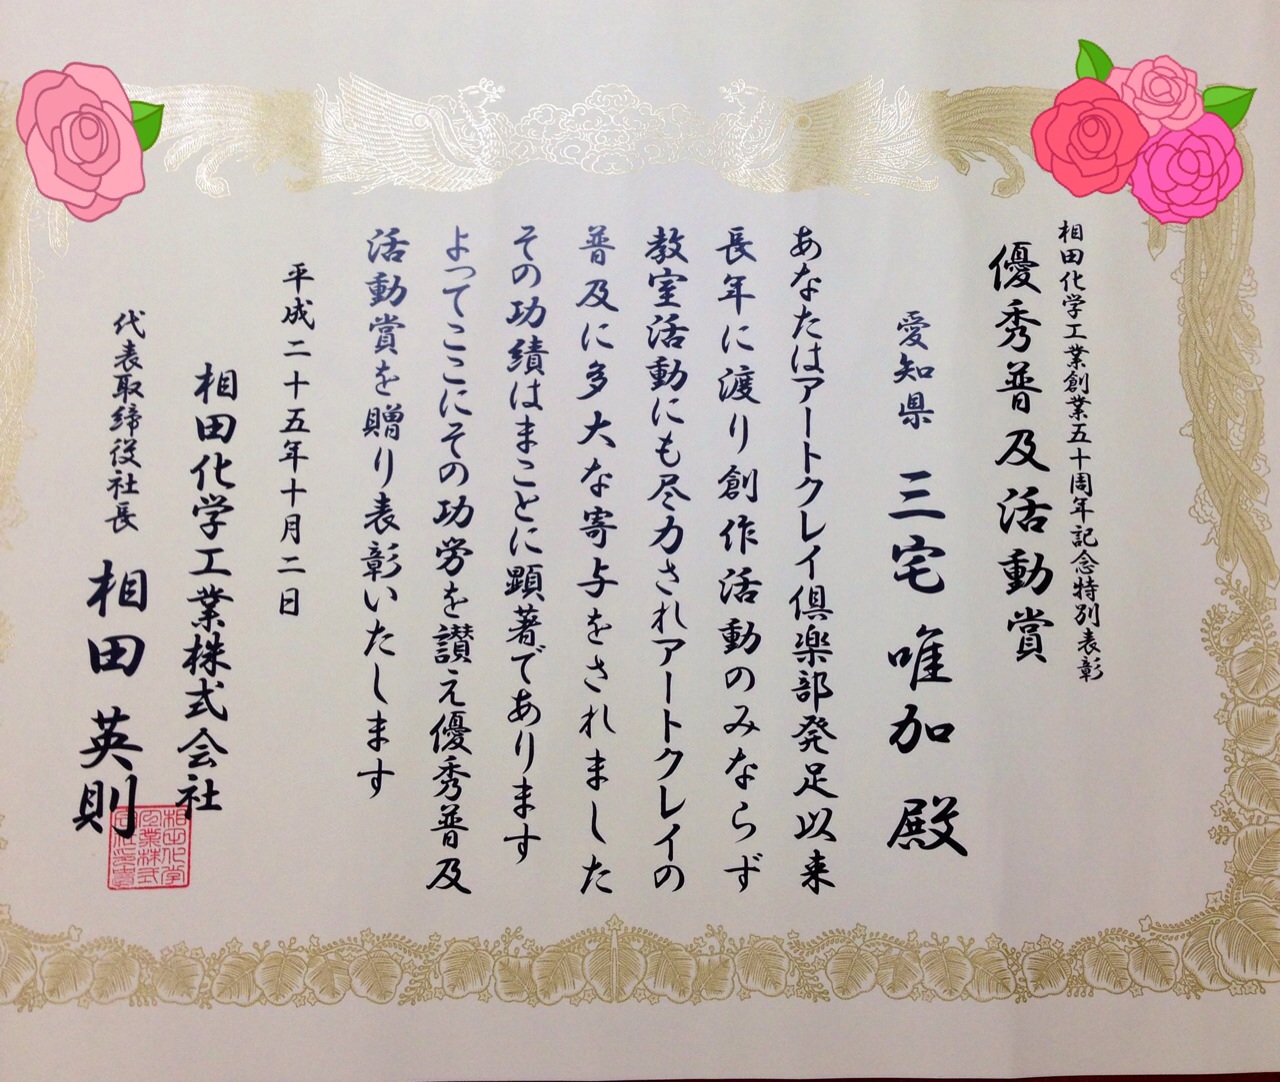 相田化学工業創業五十周年記念特別表彰
優秀普及活動賞
愛知県 三宅 唯加 殿
あなたはアートクレイ倶楽部発足以来
長年に渡り創作活動のみならず
教室活動にも尽力されアートクレイの
普及に多大な寄与をされました
その功績はまことに顕著であります
よってここにその功労を讃え優秀普及
活動賞を贈り表彰いたします
平成二十五年十月二日
相田化学工業株式会社
代表取締役社長 相田 英則